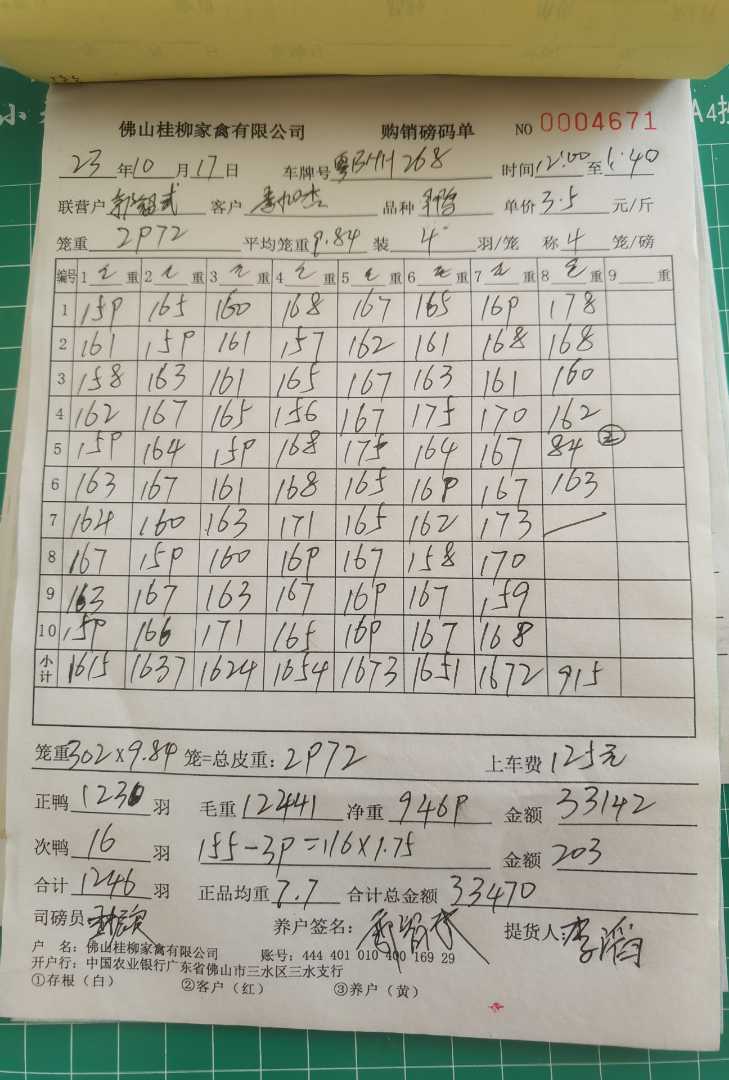 佛山桂柳家禽有限公司 购销磅码单 NO 0004671
23年10月17日 车牌号 268 时间12:00至1:40
联营户 客户 品种 单价3.5元/斤
笼重2972 平均笼重9.84 装4羽/笼 称4笼/磅
编号 1 重 2 重 3 重 4 重 5 重 6 重 7 重 8 重 9 重
1 159 165 160 168 167 165 169 178
2 161 159 161 157 162 161 168 168
3 158 163 161 165 167 163 161 160
4 162 167 165 156 167 175 170 162
5 159 164 159 168 175 164 167 84 ②
6 163 167 161 168 165 169 167 163
7 164 160 163 171 165 162 173
8 167 159 160 169 167 158 170
9 163 167 163 167 169 167 159
10 159 166 171 165 169 167 168
小计 1615 1637 1624 1654 1673 1651 1672 915
笼重302×9.84 笼=总皮重:2972 上车费125元
正鸭1230羽 毛重12441 净重9469 金额33142
次鸭16羽 155-39=116×1.75 金额203
合计1246羽 正品均重7.7 合计总金额33470
司磅员 养户签名: 提货人:李滔
户 名:佛山桂柳家禽有限公司 账号:444 401 010 400 169 29
开户行:中国农业银行广东省佛山市三水区三水支行
①存根(白) ②客户(红) ③养户(黄)